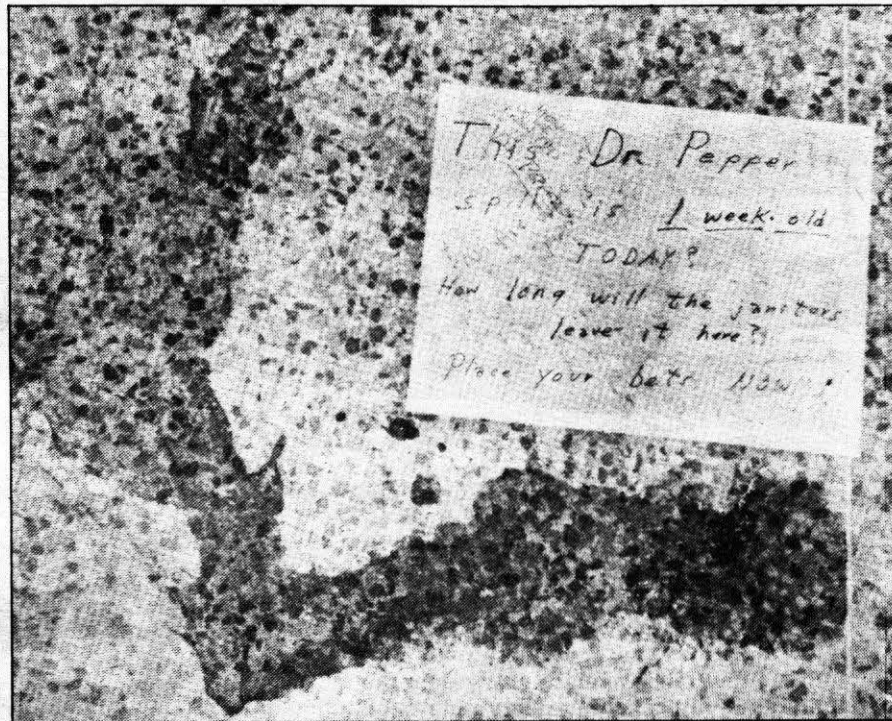 This Dr. Pepper
spill is 1 week old
TODAY?
How long will the janitors
leave it here?!
Place your bets NOW!